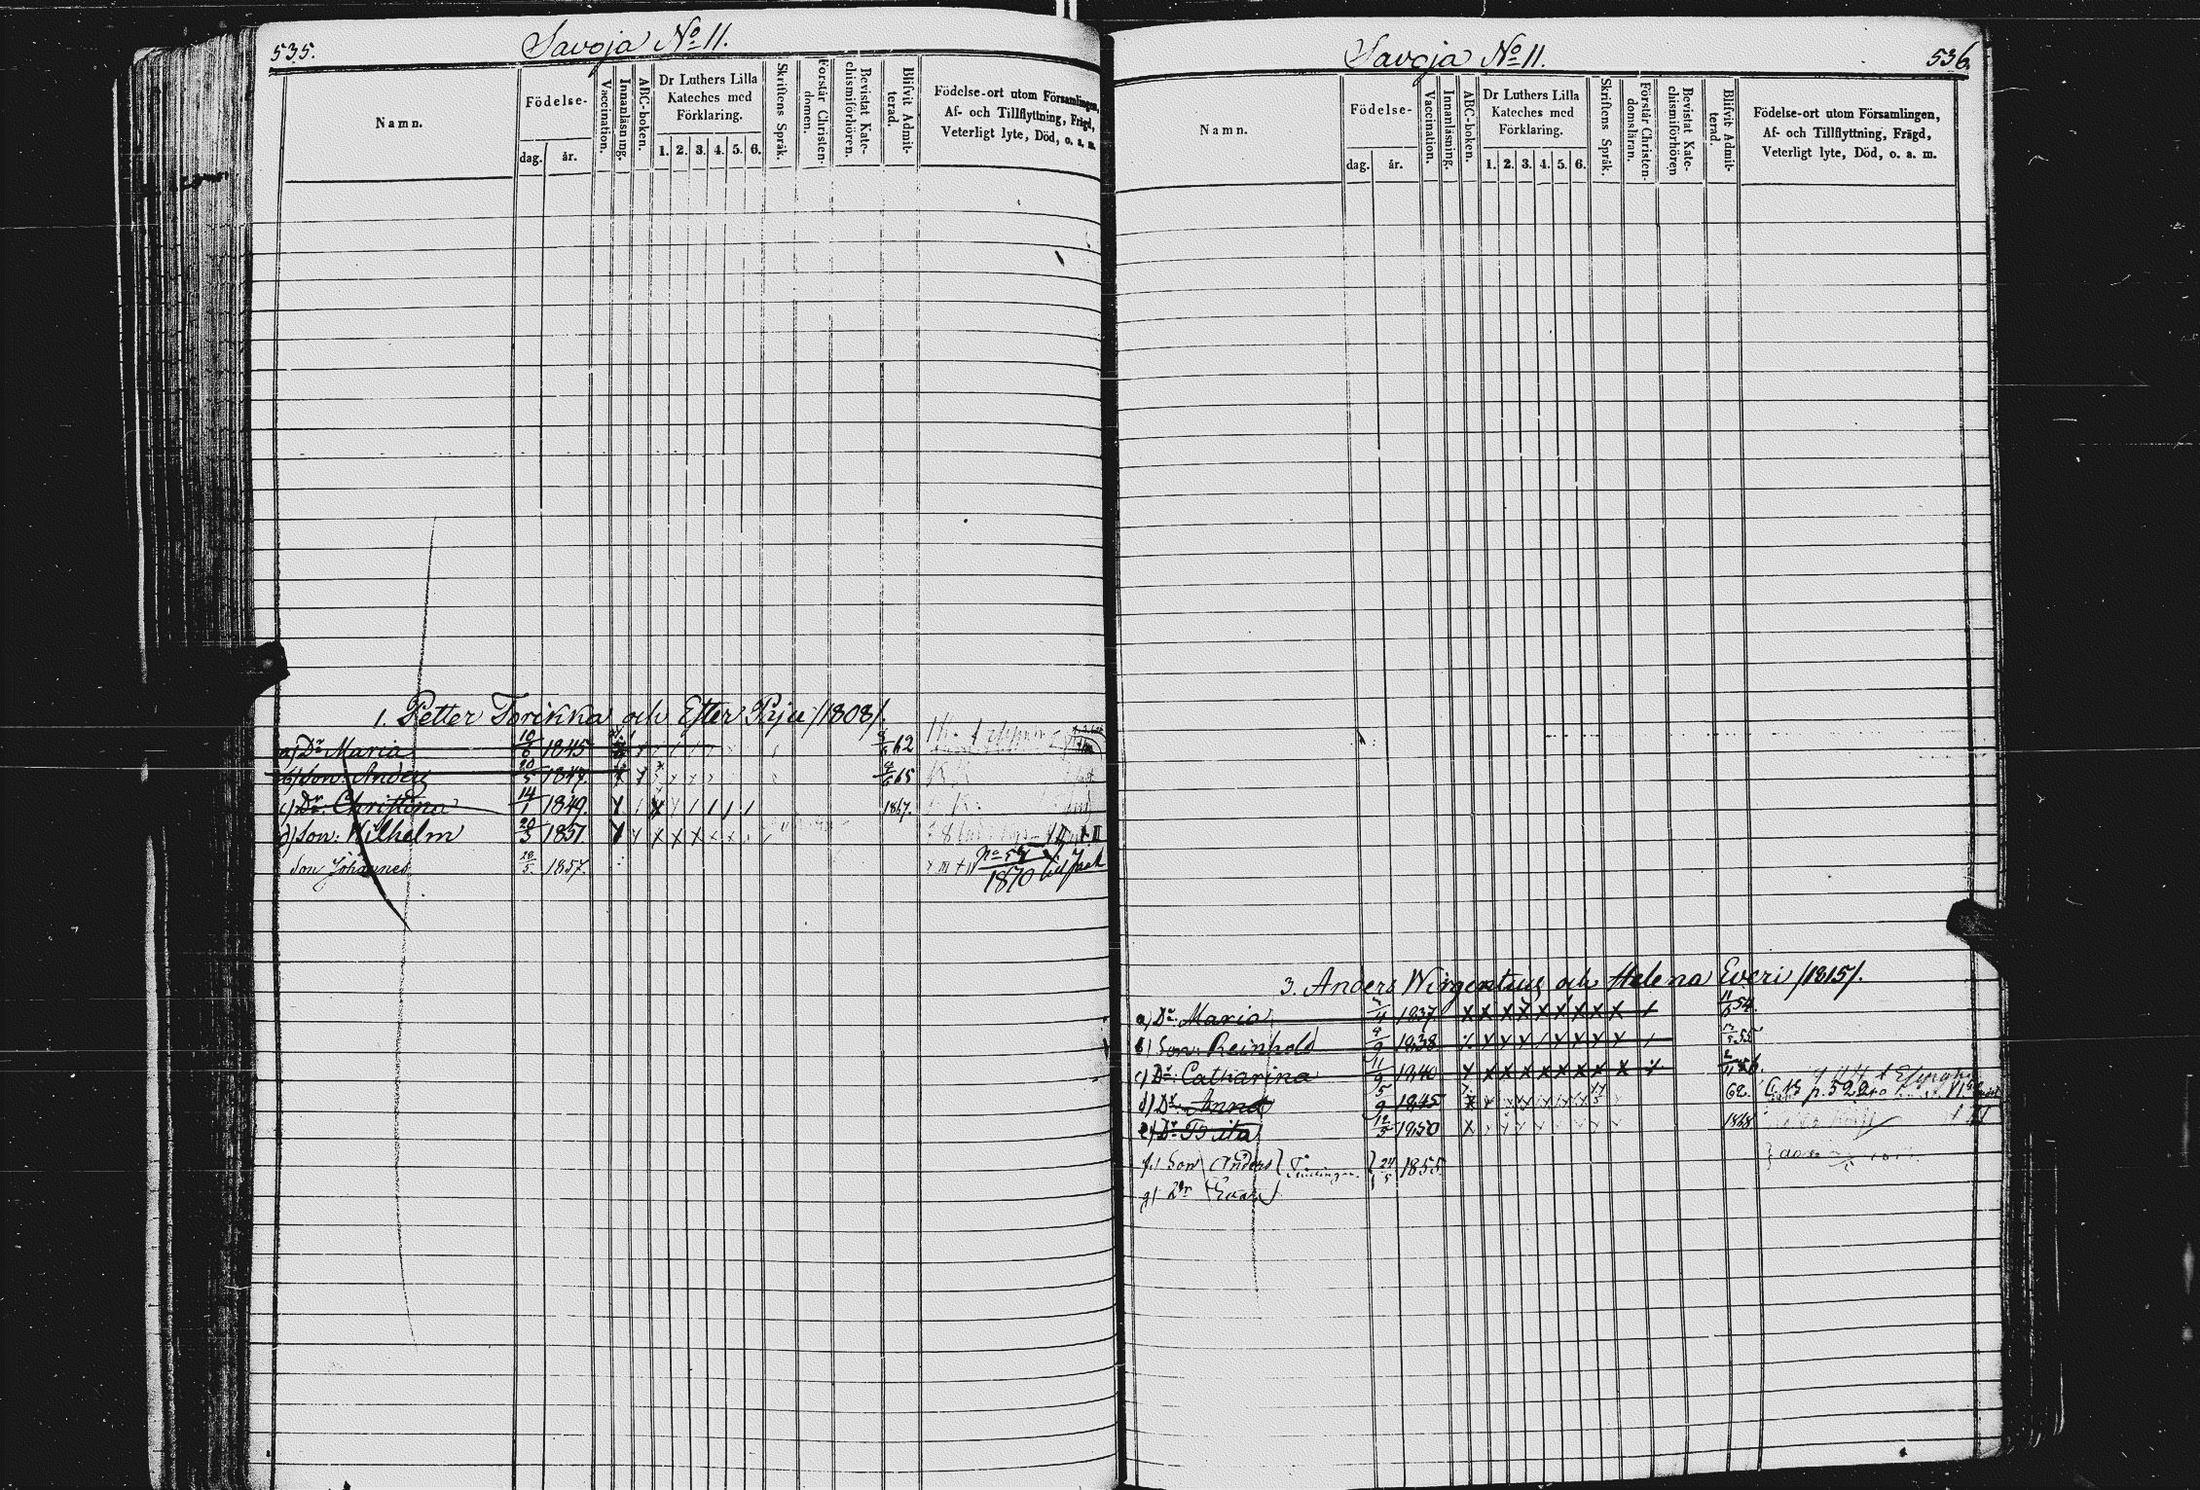 535.
Savoja No 11.
Namn.
Födelse-
dag.
år.
Vaccination.
Innanläsning.
ABC-boken.
Dr Luthers Lilla
Kateches med
Förklaring.
1. 2. 3. 4. 5. 6.
Skriftens Språk.
Förstår Christen-
domen.
Bevistat Kate-
chismiförhören.
Blifvit Admit-
terad.
Födelse-ort utom Församlingen,
Af- och Tillflyttning, Frägd,
Veterligt lyte, Död, o. a. m.
1. Petter Torikka och Ester Pyju /1808/.
a) Dr. Maria 10/6 1845 62
b) Son: Anders 20/5 1847. 65
c) Dr. Christina 14/1 1849. 1867.
d) Son: Wilhelm 20/3 1851.
Son Johannes 28/5 1857.
No 59
1870
536.
Savoja No 11.
Namn.
Födelse-
dag.
år.
Vaccination.
Innanläsning.
ABC-boken.
Dr Luthers Lilla
Kateches med
Förklaring.
1. 2. 3. 4. 5. 6.
Skriftens Språk.
Förstår Christen-
domsläran.
Bevistat Kate-
chismiförhören
Blifvit Admit-
terad.
Födelse-ort utom Församlingen,
Af- och Tillflyttning, Frägd,
Veterligt lyte, Död, o. a. m.
3. Anders Wirgentius och Helena Everi /1815/.
a) Dr. Maria 1837. 54.
b) Son: Reinhold 1838. 55
c) Dr. Catharina 11/9 1840
d) Dr. Anna 5/9 1845 62. p. 522
e) Dr. Brita 12/5 1850 1868
f.) Son Anders 24/5 1855
g) Dr